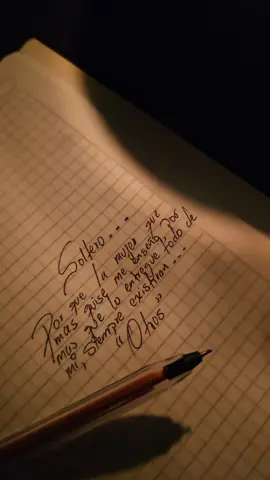 Soltero...
Por que la mujer que
mas quise me enseño, por
mas que lo entregue todo de
mi, siempre existiran...
"Otros"